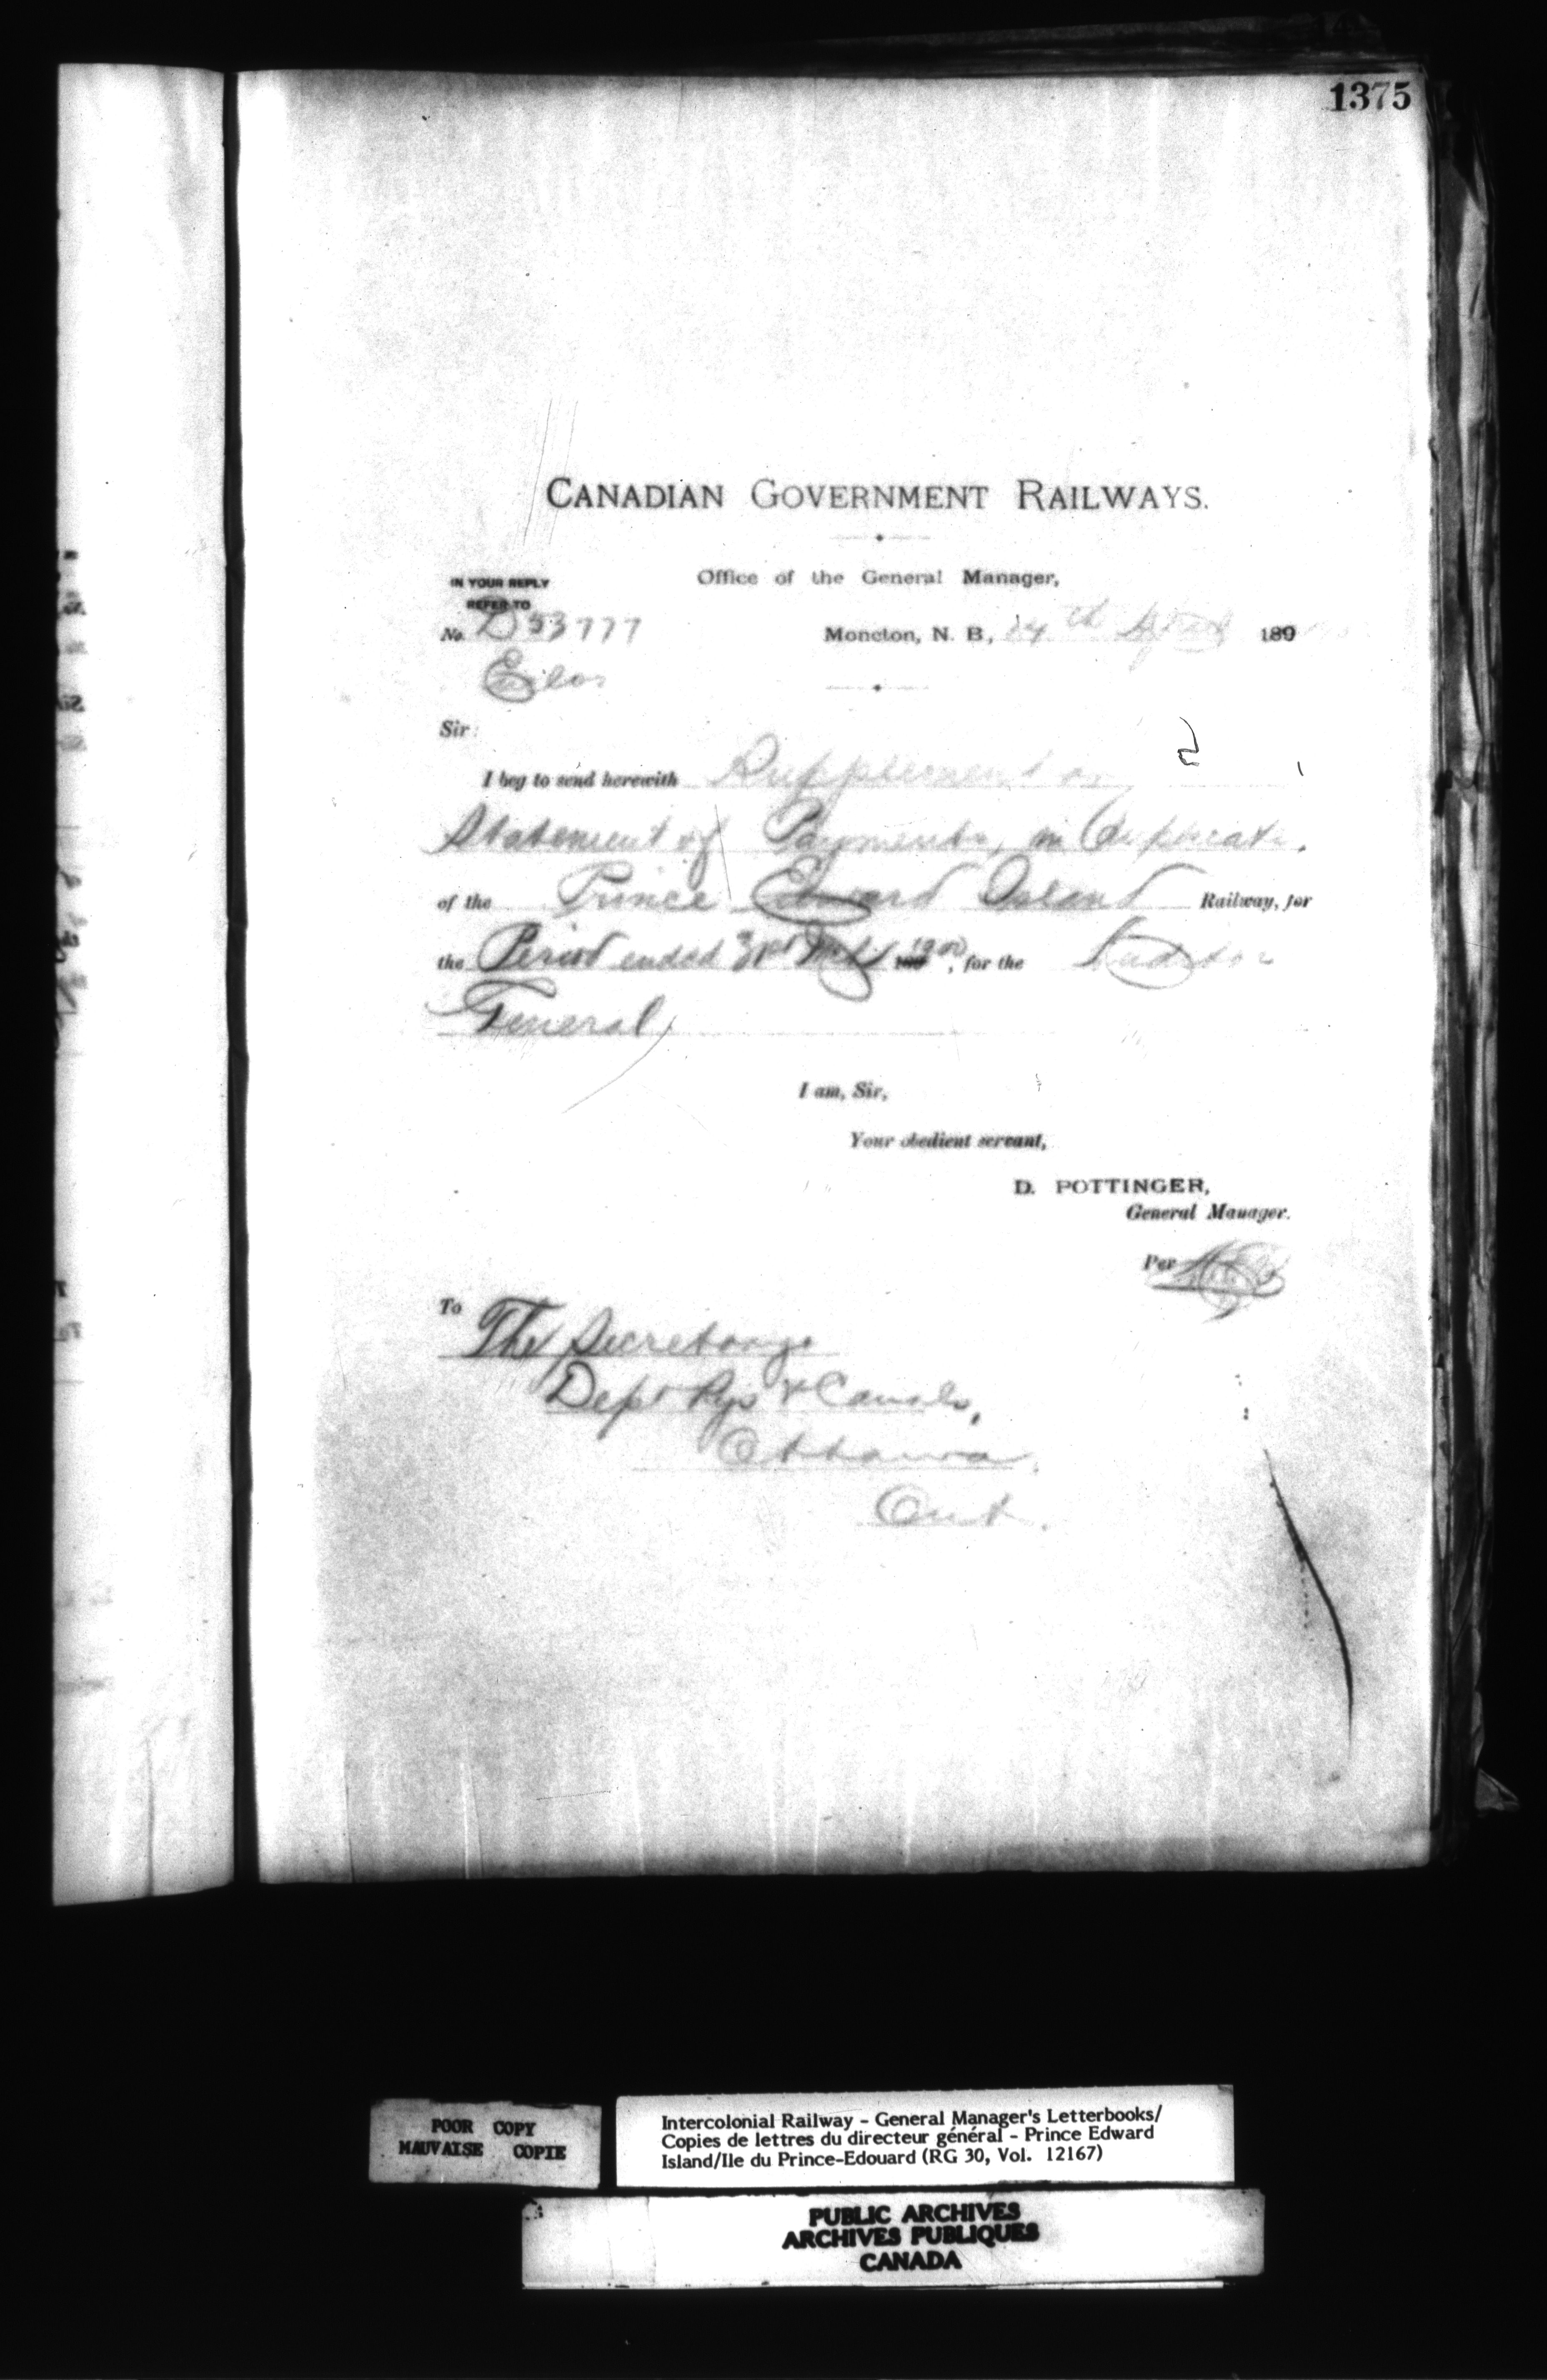 1375
CANADIAN GOVERNMENT RAILWAYS.
Office of the General Manager,
IN YOUR REPLY
REFER TO
No. D53777
Moncton, N. B., 24th April 189
Sir:
I beg to send herewith Supplementary
Statement of Payments, in Duplicate,
of the Prince Edward Island Railway, for
the Period ended 31st Mch 1900, for the Auditor
General,
I am, Sir,
Your obedient servant,
D. POTTINGER,
General Manager.
Per
To The Secretary
Dept Rys & Canals,
Ottawa,
Ont.
POOR COPY
MAUVAISE COPIE
Intercolonial Railway - General Manager's Letterbooks/
Copies de lettres du directeur général - Prince Edward
Island/Ile du Prince-Edouard (RG 30, Vol. 12167)
PUBLIC ARCHIVES
ARCHIVES PUBLIQUES
CANADA